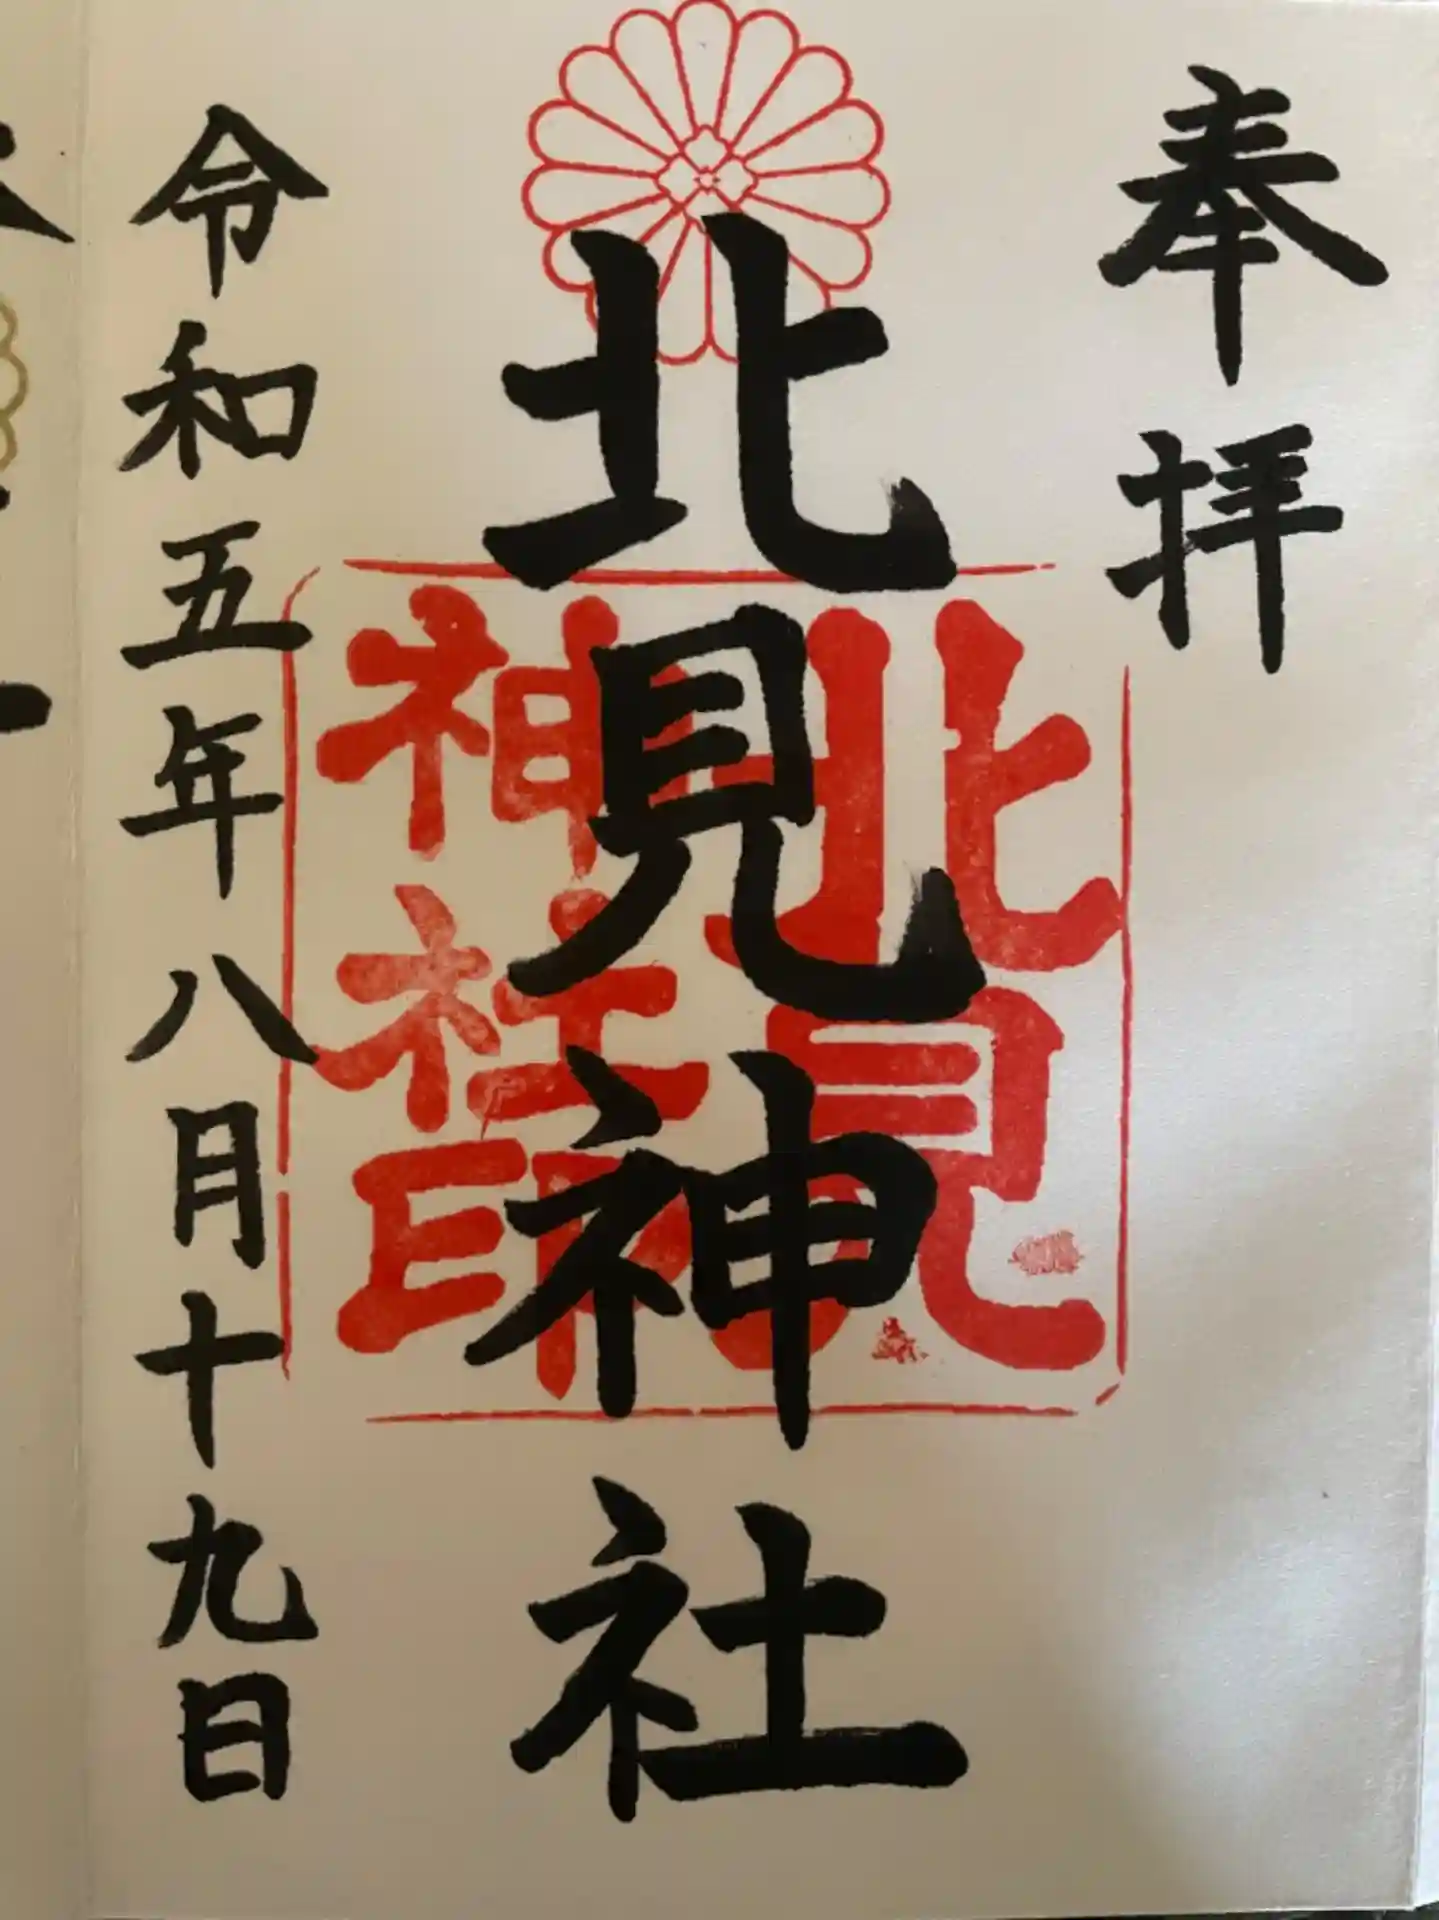 奉拝
北見神社
北見
神社印
令和五年八月十九日